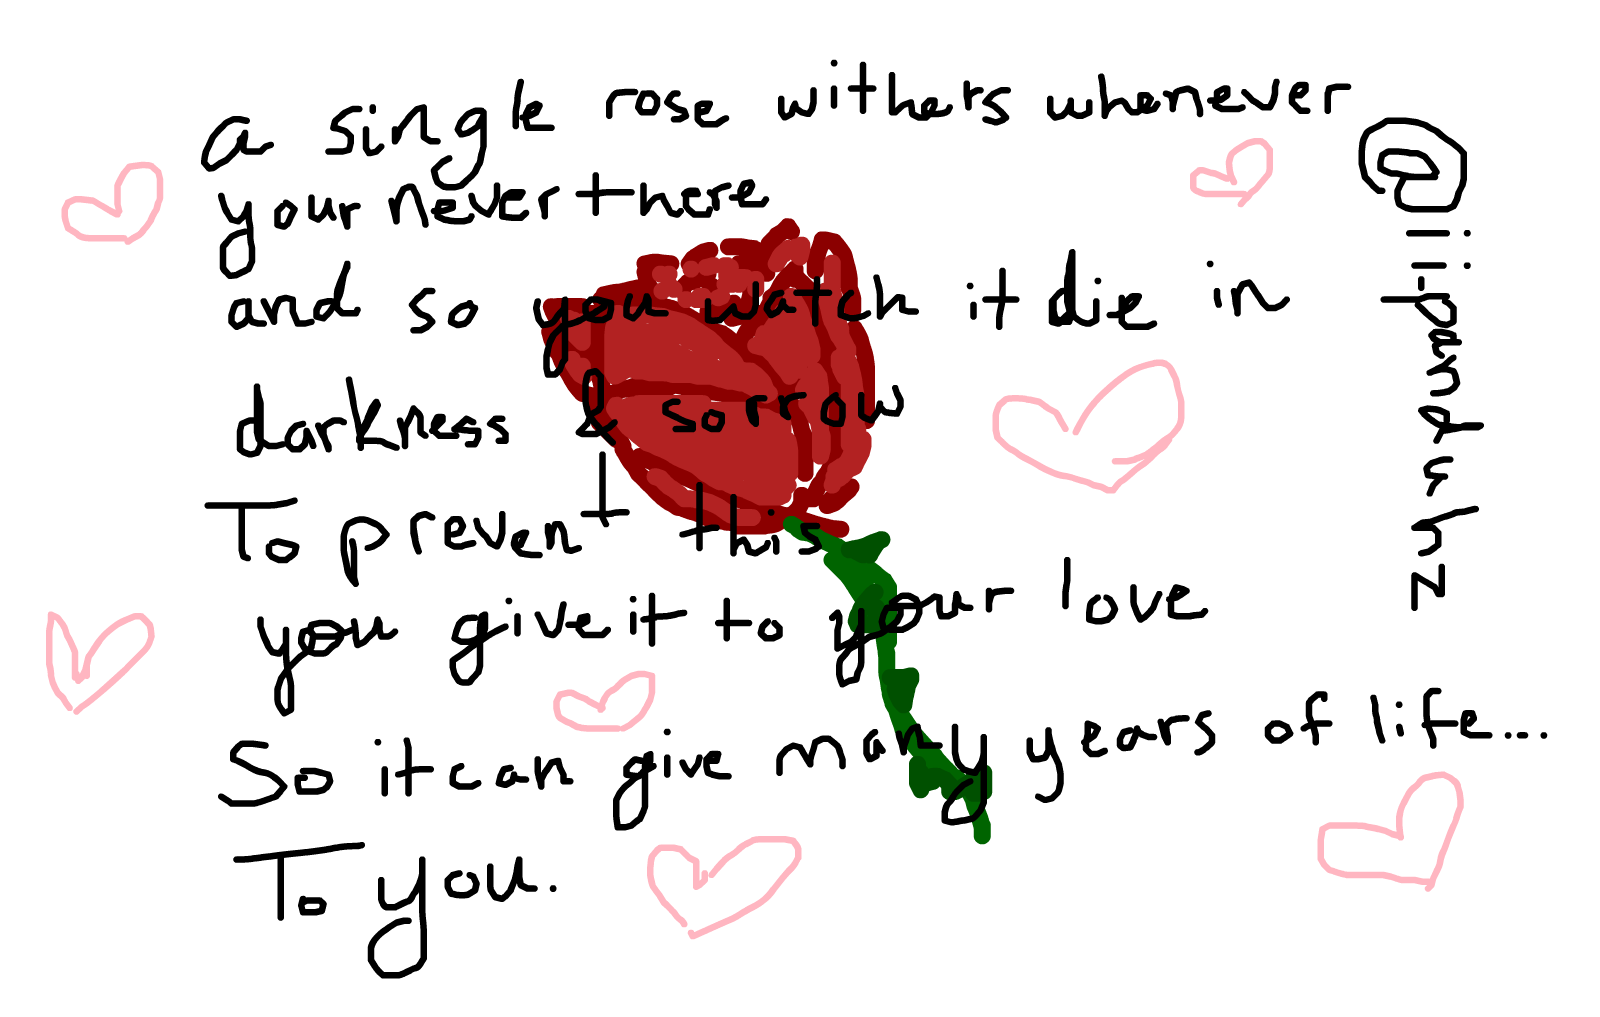 a single rose withers whenever
your never there
and so you watch it die in
darkness & sorrow
To prevent this
you give it to your love
So it can give many years of life...
To you.